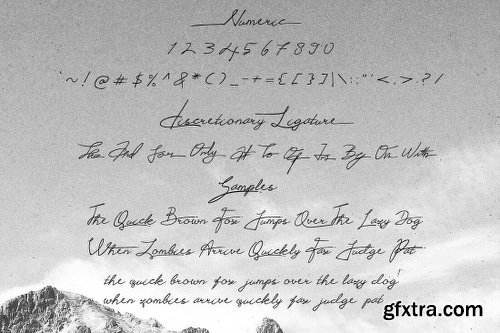 Numeric
1 2 3 4 5 6 7 8 9 0
`~!@#$%^&*()_-+={[}]|\:;"'<,>.?/
Discretionary Ligature
The And For Only At To Of Is By On With
Samples
The Quick Brown Fox Jumps Over The Lazy Dog
When Zombies Arrive Quickly Fax Judge Pat
the quick brown fox jumps over the lazy dog
when zombies arrive quickly fax judge pat
gfxtra.com